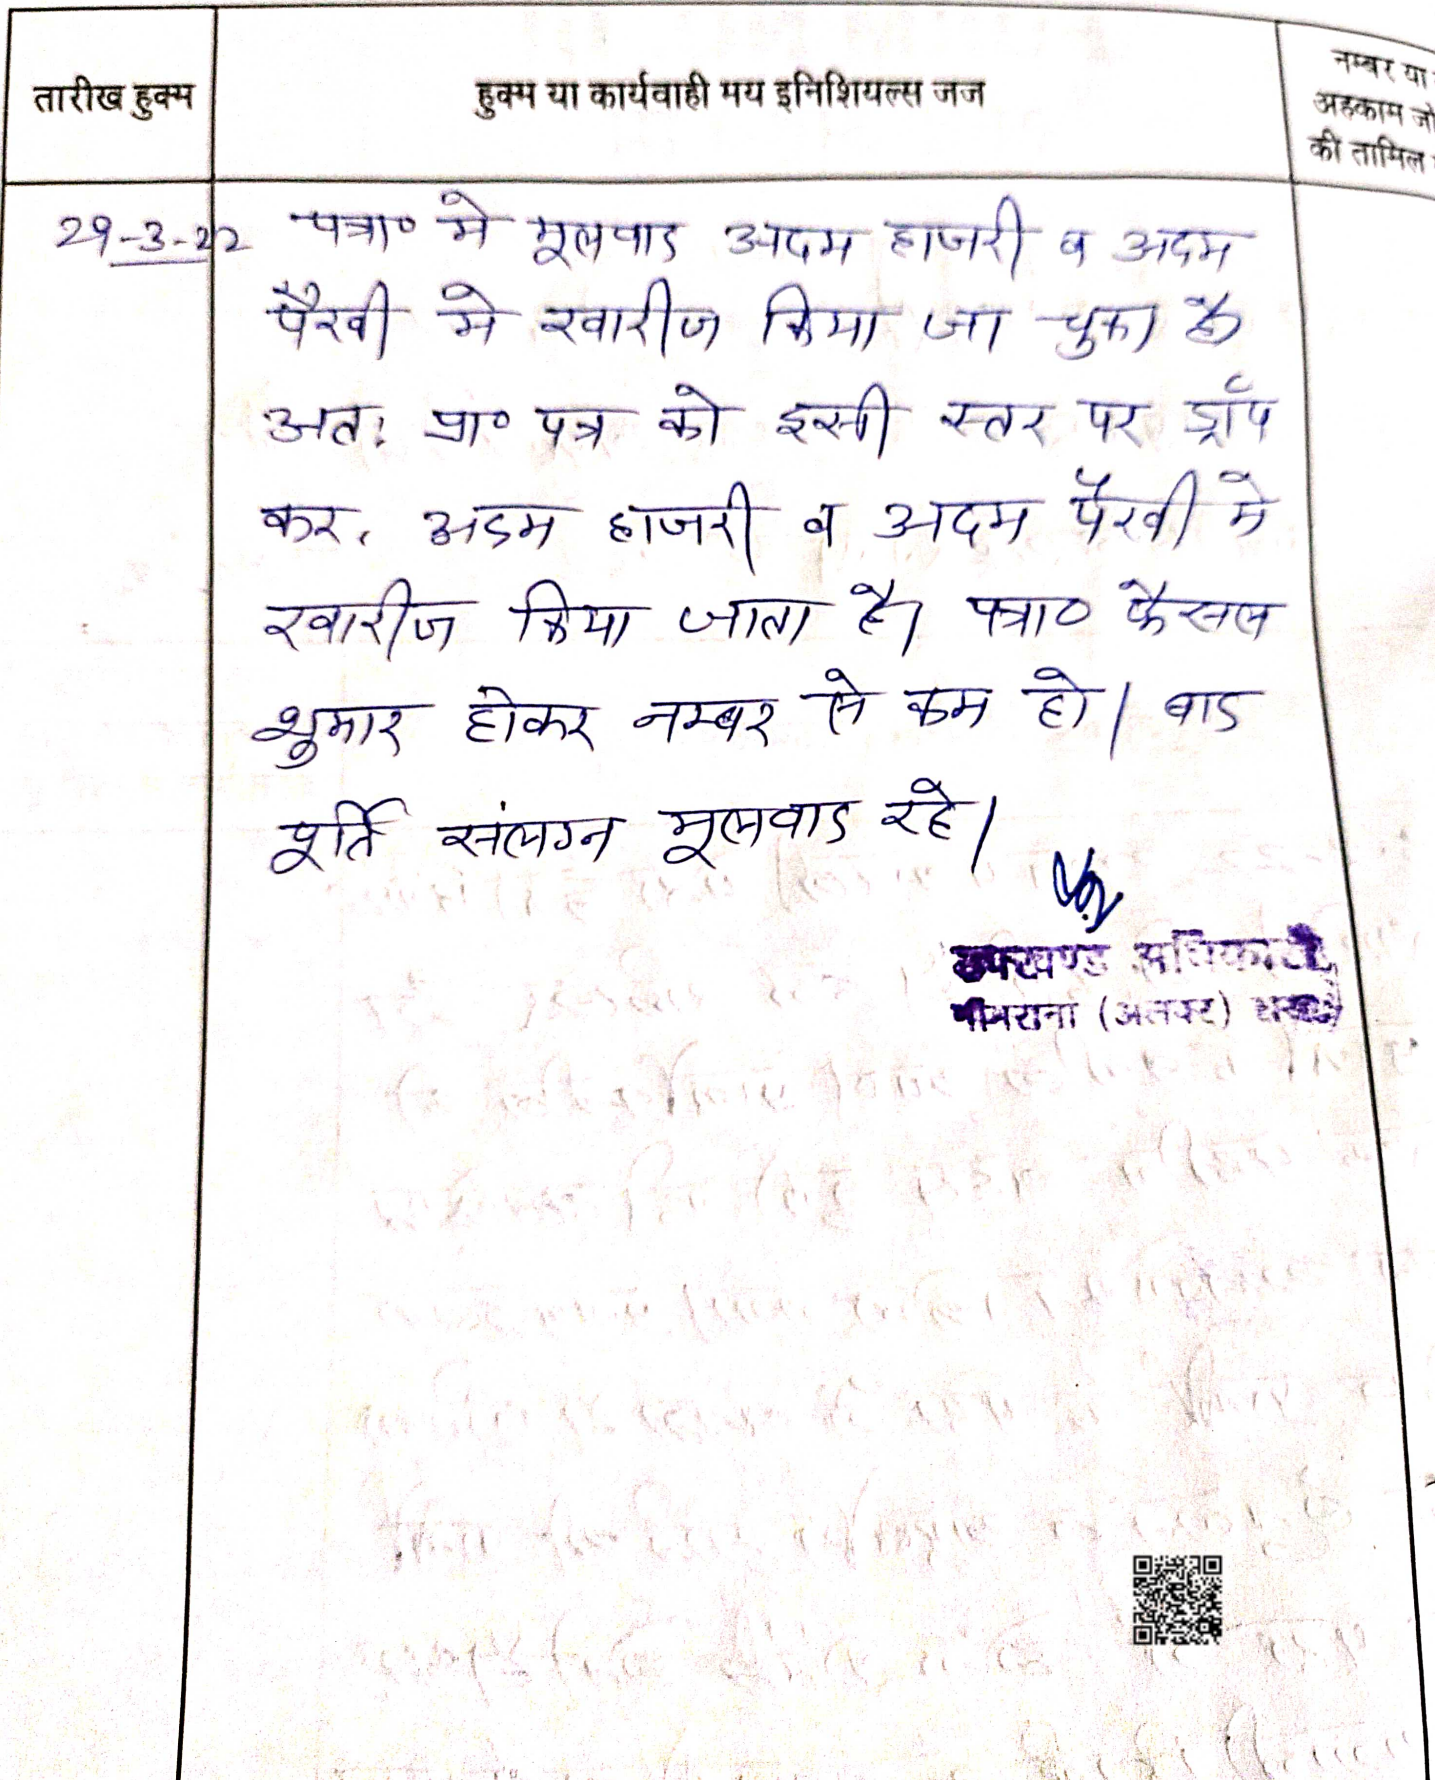 तारीख हुक्म
हुक्म या कार्यवाही मय इनिशियल्स जज
नम्बर या
अहकाम जो
की तामिल
29-3-22 पत्रा० मे मूलवाद अदम हाजरी व अदम
पैरवी मे खारीज किया जा चुका है
अतः प्रा० पत्र को इसी स्तर पर ड्रॉप
कर, अदम हाजरी व अदम पैरवी मे
खारीज किया जाता है। पत्रा० फैसल
शुमार होकर नम्बर से कम हो। बाद
पूर्ति संलग्न मूलवाद रहे।
उपखण्ड अधिकारी
नीमराना (अलवर) राज०